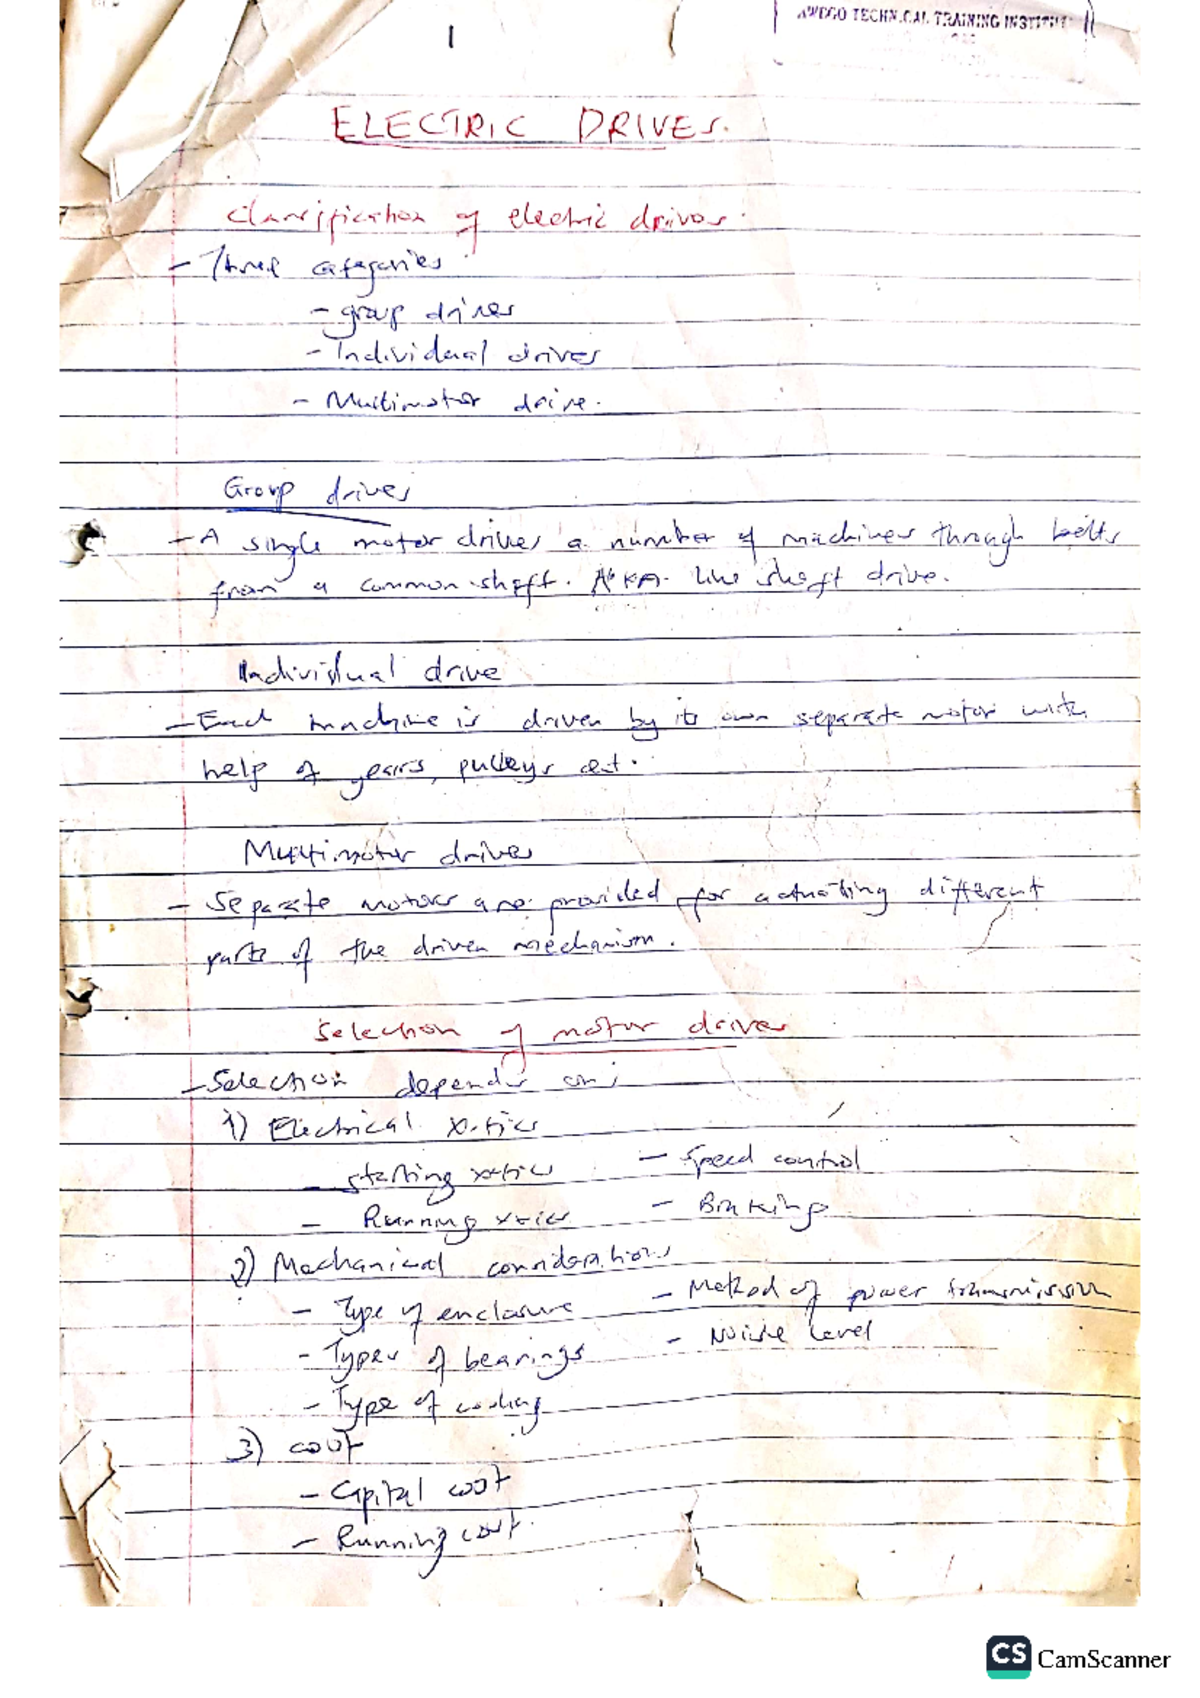 1
TECHNICAL TRAINING INSTITUTE
ELECTRIC DRIVES.
Classification of electric drives.
- Three categories
- group drives
- Individual drives
- Multimotor drive.
Group drives
- A single motor drives a number of machines through belts
from a common shaft. A.K.A. line shaft drive.
Individual drive
- Each machine is driven by its own separate motor with
help of gears, pulleys cet.
Multimotor drives
- Separate motors are provided for actuating different
parts of the driven mechanism.
Selection of motor drives
- Selection depends on;
1) Electrical x-tics
- starting x-tics - Speed control
- Running x-tics - Braking
2) Mechanical considerations
- Type of enclosure - Method of power transmission
- Types of bearings - Noise level
- Type of cooling
3) Cost
- Capital cost
- Running cost.
CS CamScanner